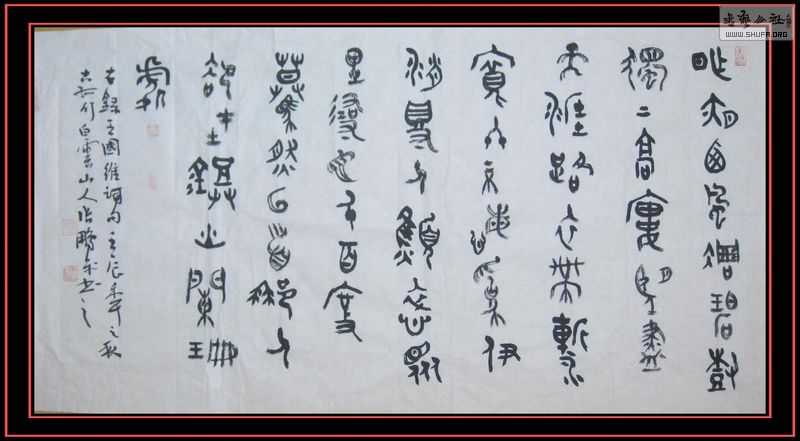 书艺公社
WWW.SHUFA.ORG
昨夜西風凋碧樹
獨上高樓望盡
天涯路衣帶漸
寬終不悔為伊
消得人憔悴眾
里尋他千百度
驀然回首那人
卻在鐙火闌珊
處
右錄王國維詞句壬辰年之秋
白雲山人書之